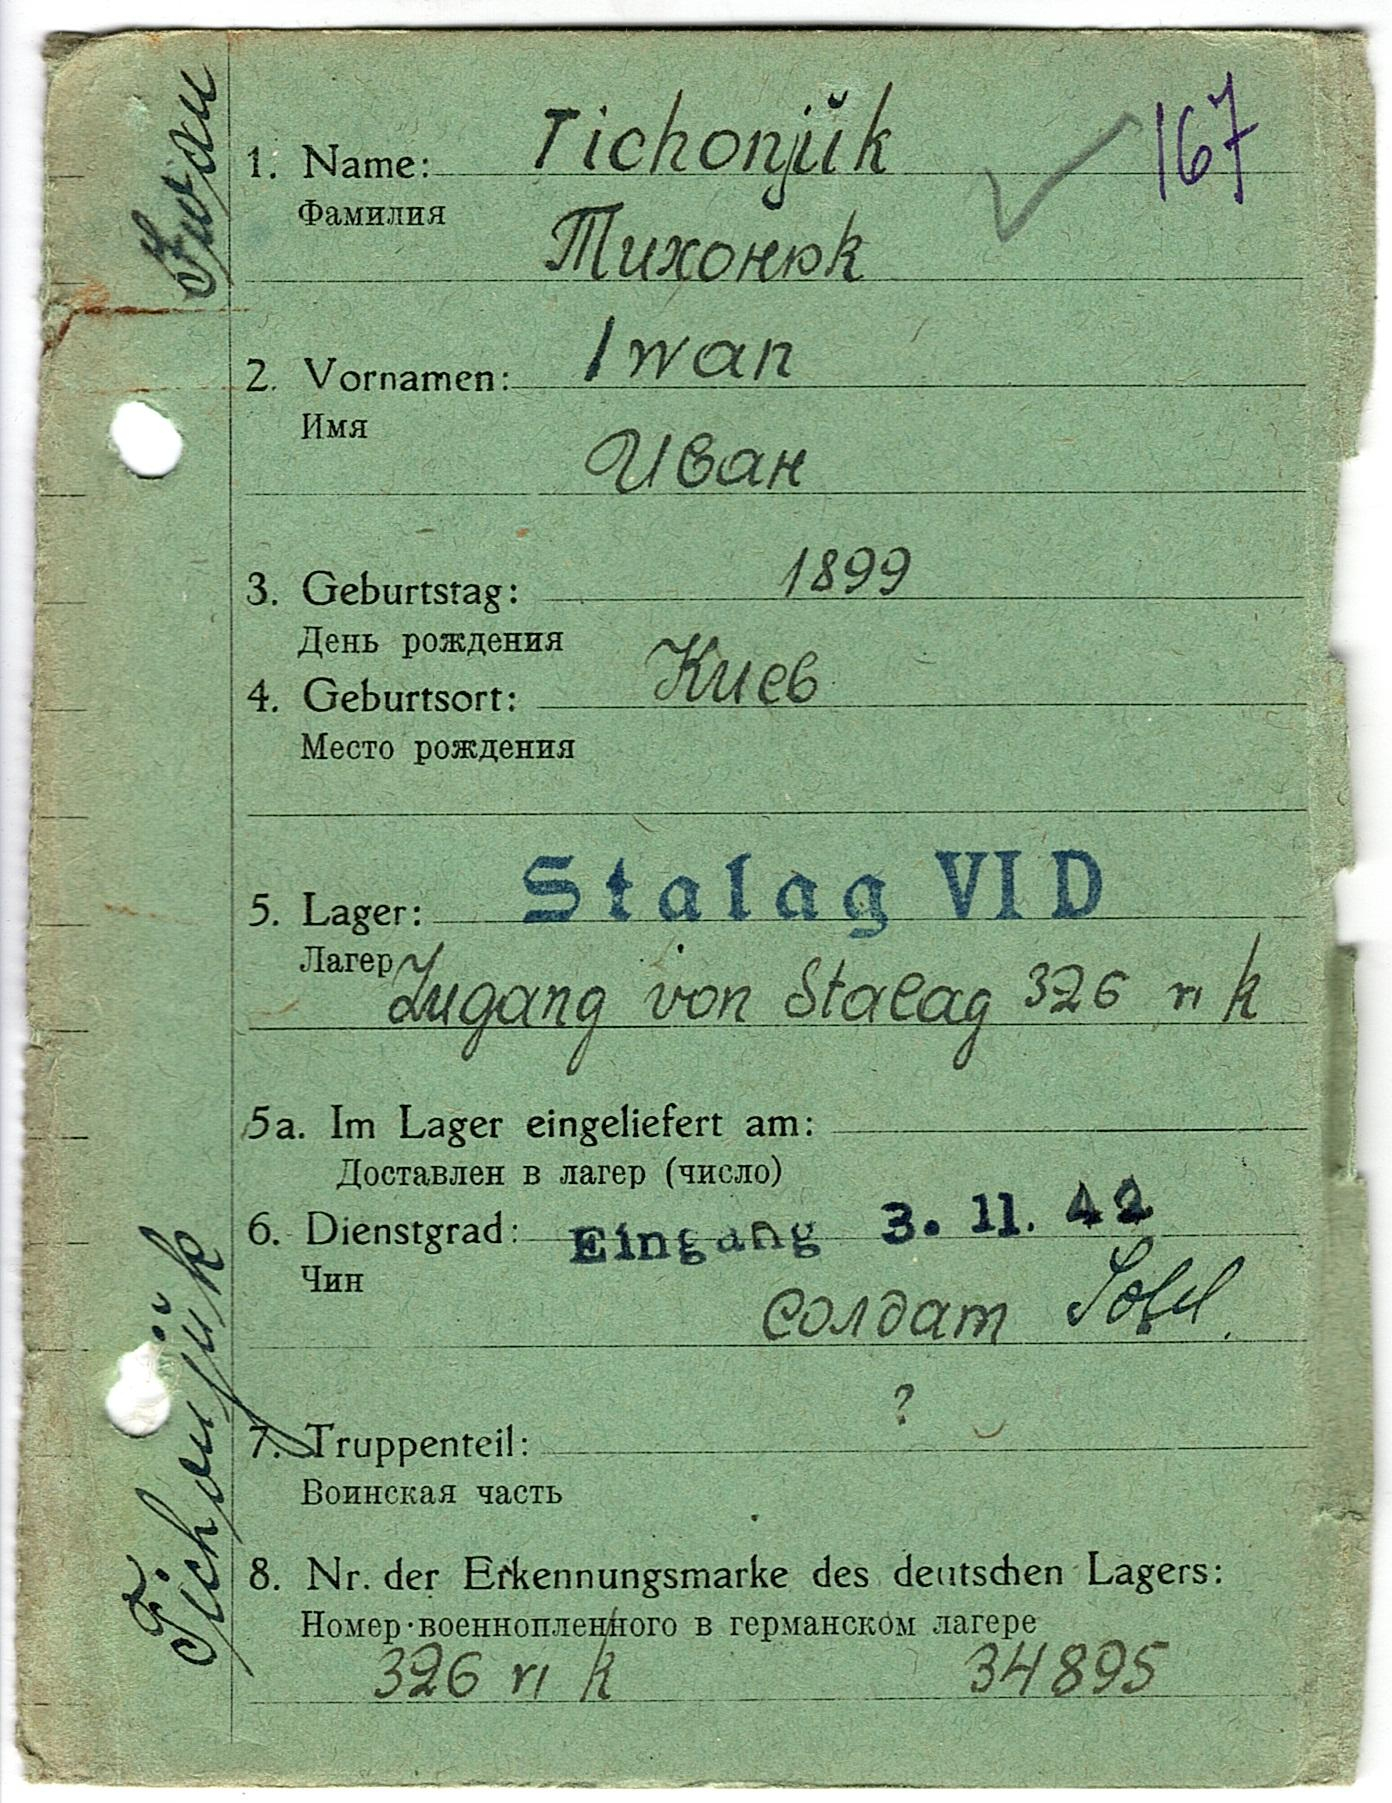 167
1. Name: Tichonjŭk
Фамилия
Тихонюк
2. Vornamen: Iwan
Имя
Иван
3. Geburtstag: 1899
День рождения
4. Geburtsort: Киев
Место рождения
5. Lager: Stalag VI D
Лагер
Zugang von Stalag 326 VI k
5a. Im Lager eingeliefert am:
Доставлен в лагер (число)
6. Dienstgrad: Eingang 3. 11. 42
Чин
солдат Sold.
?
7. Truppenteil:
Воинская часть
8. Nr. der Erkennungsmarke des deutschen Lagers:
Номер военнопленного в германском лагере
326 VI k 34895
Tichonjük Iwan